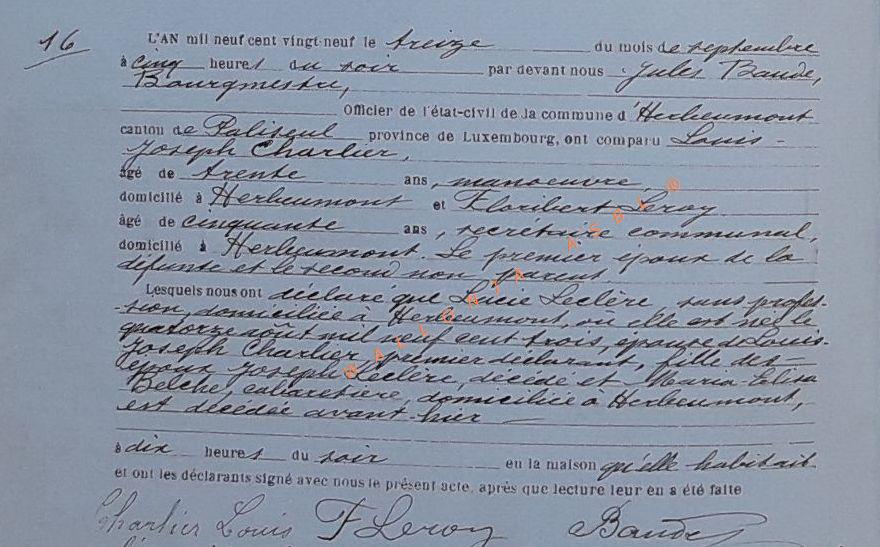 16
L'AN mil neuf cent vingt-neuf le treize du mois de septembre
à cinq heures du soir par devant nous Jules Baude,
Bourgmestre,
Officier de l'état-civil de la commune d'Herbeumont
canton de Paliseul province de Luxembourg, ont comparu Louis-
Joseph Charlier,
âgé de trente ans, manoeuvre,
domicilié à Herbeumont et Floribert Leroy
âgé de cinquante ans, secrétaire communal,
domicilié à Herbeumont. Le premier époux de la
défunte et le second non parent
Lesquels nous ont déclaré que Lucie Leclère, sans profes-
sion, domiciliée à Herbeumont, où elle est née le
quatorze août mil neuf cent trois, épouse de Louis-
Joseph Charlier, premier déclarant, fille des
époux Joseph Leclère, décédé et Maria-Elisa
Belche, cabaretière, domiciliée à Herbeumont,
est décédée avant-hier
à dix heures du soir en la maison qu'elle habitait
et ont les déclarants signé avec nous le présent acte, après que lecture leur en a été faite
Charlier Louis F Leroy Baude